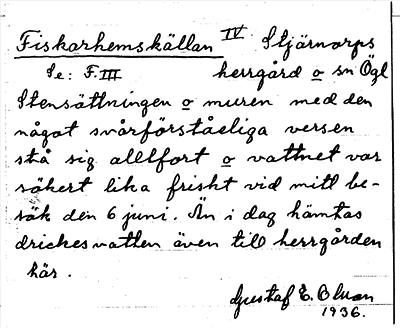 Fiskarhemskällan IV Stjärnorps
Se: F.III herrgård o sn Ögl
Stensättningen o muren med den
något svårförståeliga versen
stå sig alltfort o vattnet var
säkert lika friskt vid mitt be-
sök den 6 juni. Än i dag hämtas
dricksvatten även till herrgården
här.
Gustaf E.
1936.